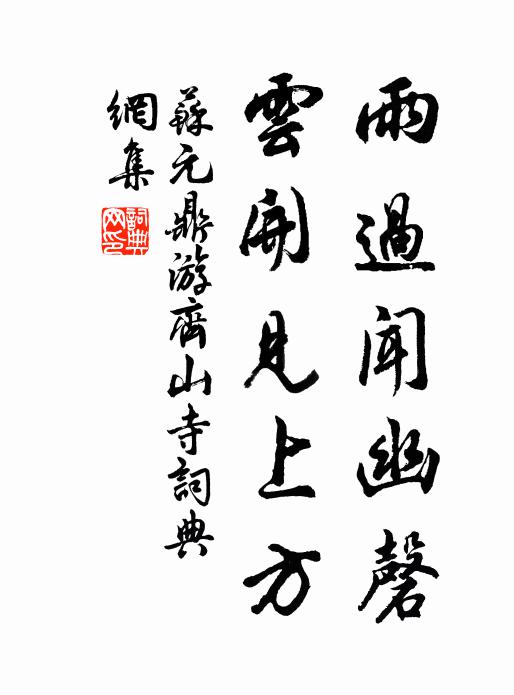 雨過聞幽磬
雲開見上方
蘇元鼎游齊山寺詞典
網集
詞典網印